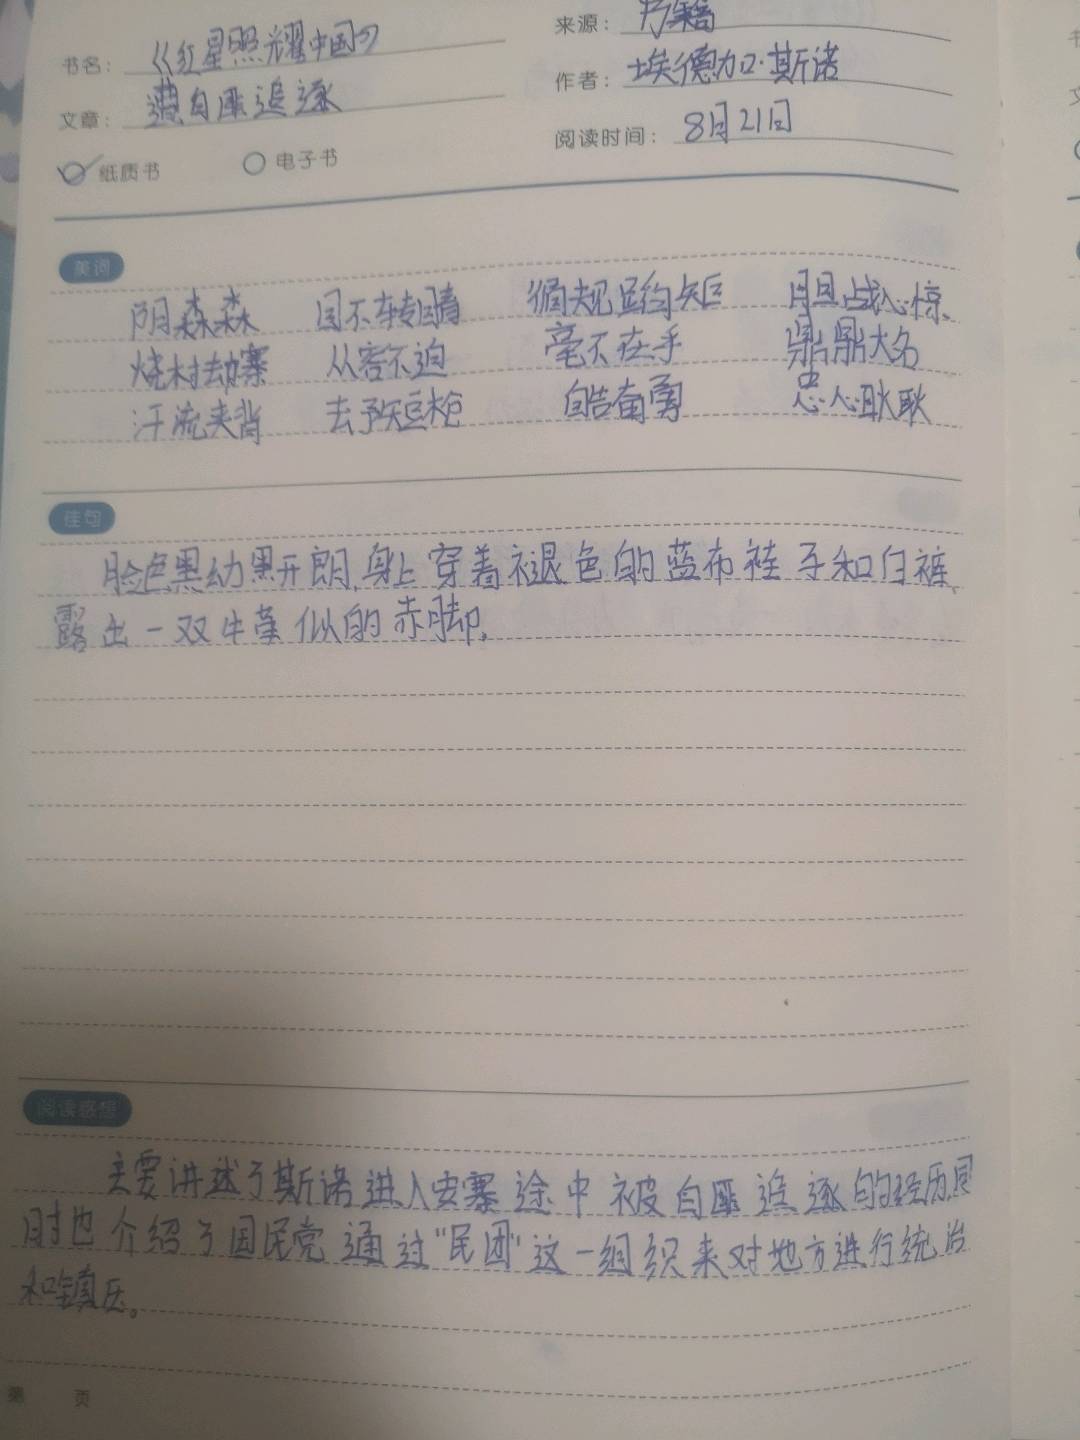 书名：《红星照耀中国》
来源：书籍
文章：遭白匪追逐
作者：埃德加·斯诺
纸质书 电子书
阅读时间：8月21日
美词
阴森森 目不转睛 循规蹈矩 胆战心惊
烧村劫寨 从容不迫 毫不在乎 鼎鼎大名
汗流夹背 长矛短枪 自告奋勇 忠心耿耿
佳句
脸色黑幼黑开朗,身上穿着褪色的蓝布袿子和白裤,
露出一双牛革似的赤脚,
阅读感想
主要讲述了斯诺进入安塞途中被白匪追逐的经历,同
时也介绍了国民党通过"民团"这一组织来对地方进行统治
和镇压。
第 页